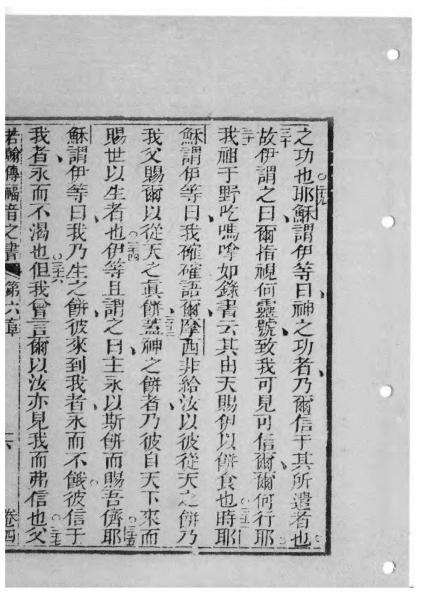 之功也耶穌謂伊等曰神之功者乃爾信于其所遣者也
故伊謂之曰爾指視何靈號致我可見可信爾爾何行耶
我祖于野吃嗎𠲿如錄書云其由天賜伊以餅食也時耶
穌謂伊等曰我確確語爾摩西非給汝以彼從天之餅乃
我父賜爾以從天之真餅蓋神之餅者乃彼自天下來而
賜世以生者也伊等且謂之曰主永以斯餅而賜吾儕耶
穌謂伊等曰我乃生之餅彼來到我者永而不餓彼信于
我者永而不渴也但我曾言爾以汝亦見我而弗信也父
若翰傳福音之書 第六章 六 卷四